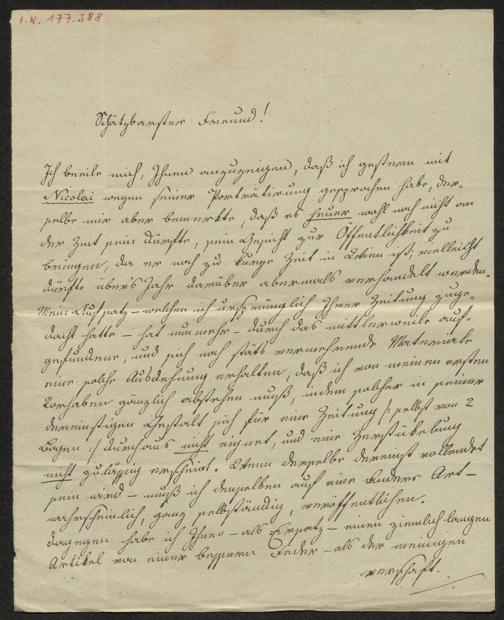 I.N. 177.388
Schätzbarster Freund!
Ich beeile mich, Ihnen anzuzeigen, daß ich gestern mit
Nicolai wegen seiner Porträtirung gesprochen habe, der-
selbe mir aber bemerkte, daß es heuer wohl noch nicht an
der Zeit sein dürfte, sein Gesicht zur Öffentlichkeit zu
bringen, da er noch zu kurze Zeit in Wien ist; vielleicht
dürfte übers Jahr darüber abermals verhandelt werden.
Mein Aufsatz – welchen ich ursprünglich Ihrer Zeitung zuge-
dacht hatte – hat nunmehr – durch das mittlerweile auf-
gefundene, und sich noch stäts vermehrende Materiale
eine solche Ausdehnung erhalten, daß ich von meinen ersten
Vorhaben gänzlich abstehen muß, indem solcher in seiner
dereinstigen Gestalt sich für eine Zeitung /: selbst von 2
Bogen :/ durchaus nicht eignet, und eine Zerstückelung
nicht zulässig erscheint. Wenn derselbe dereinst vollendet
sein wird – muß ich denselben auf eine andere Art –
wahrscheinlich, ganz selbständig, veröffentlichen.
Dagegen habe ich Ihnen – als Ersatz – einen ziemlich langen
Artikel von einer bessern Feder – als der meinigen
verschafft.